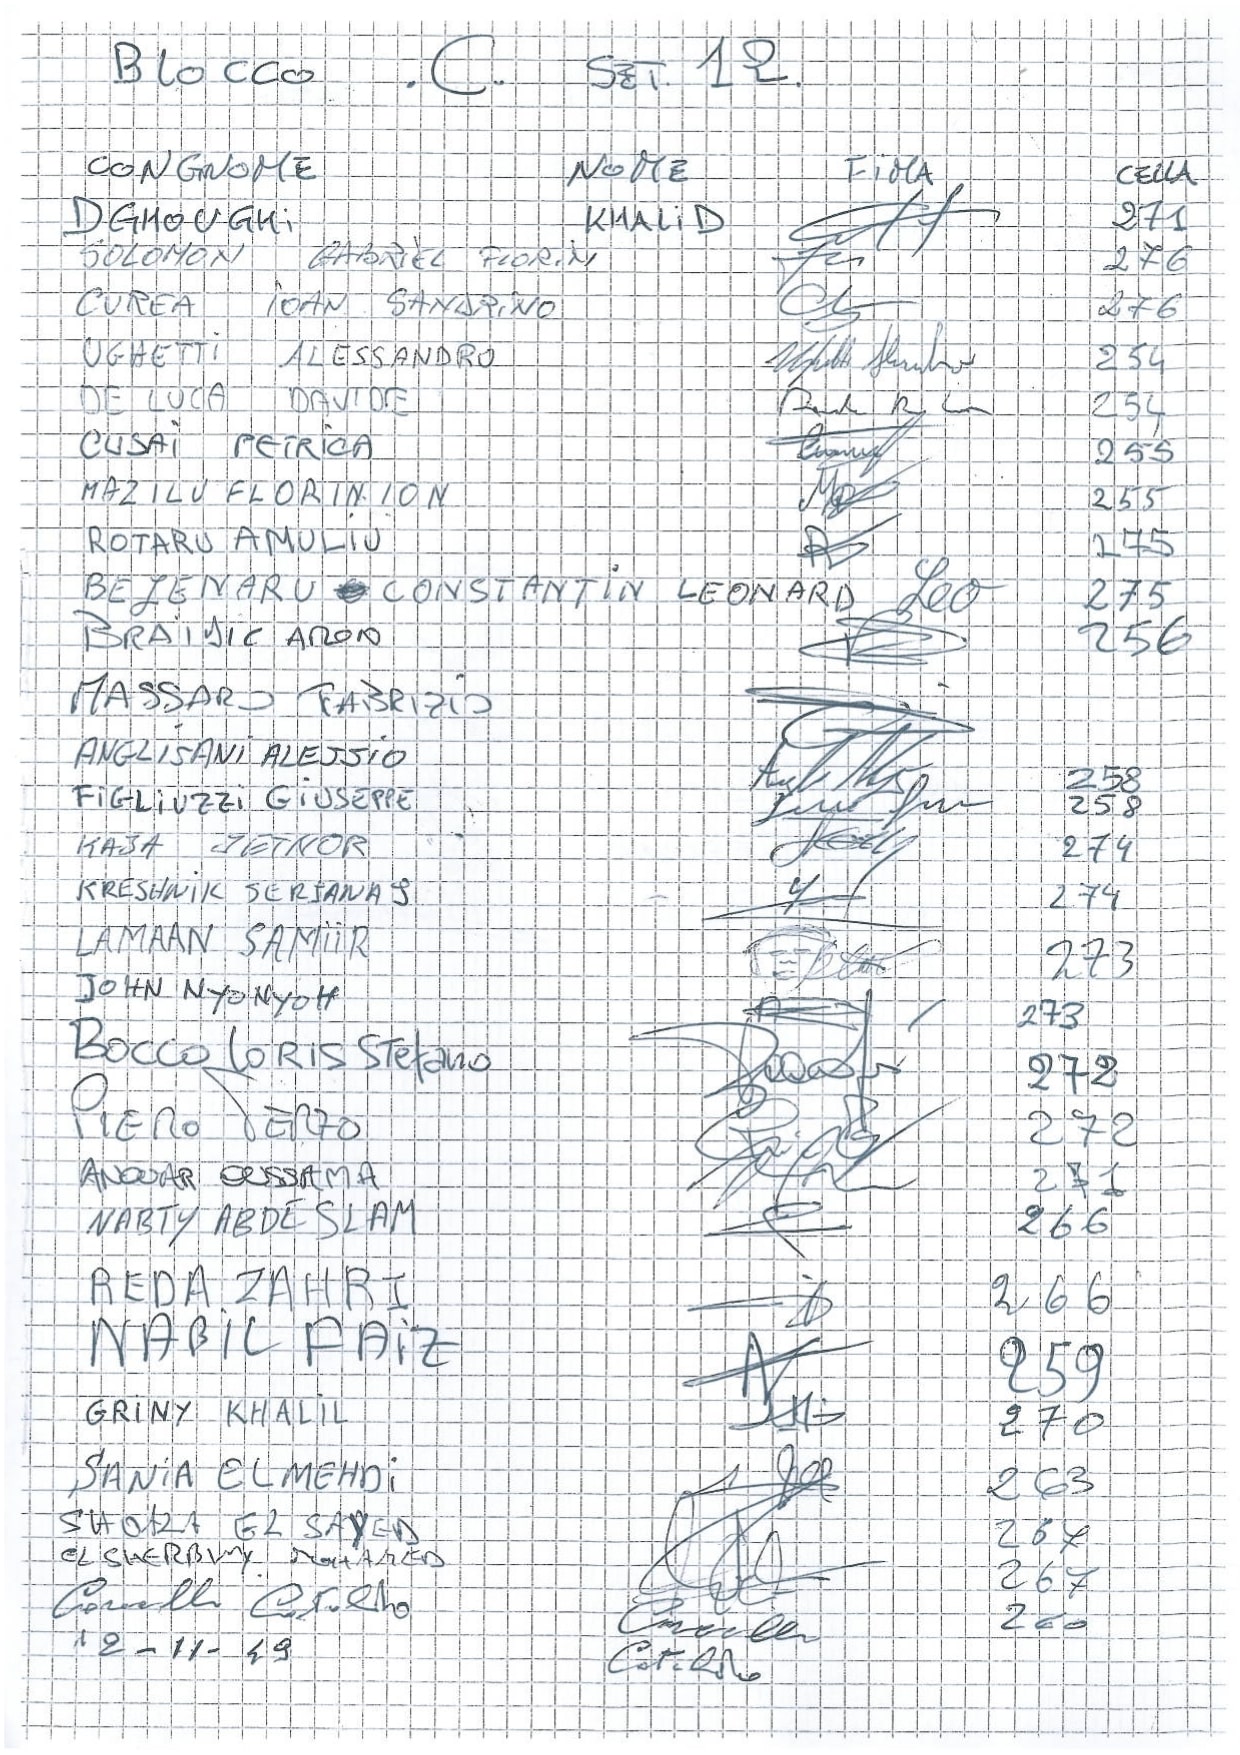 Blocco .C. SET. 12.
CONGNOME NOME FIMA CELLA
DGHOUGHi KHALiD 271
SOLOMON GABRIEL FLORIN 276
CUREA IOAN SANDRINO 276
UGHETTI ALESSANDRO 254
DE LUCA DAVIDE 254
CUSAI PETRICA 255
MAZILU FLORIN ION 255
ROTARU AMULIU 275
BEJENARU CONSTANTIN LEONARD Leo 275
ARON 256
MASSARO FABRIZIO
ANGLISANI ALESSIO 258
FIGLIUZZI GIUSEPPE 258
KAJA JETNOR 274
KRESHNIK 274
LAMAAN SAMIIR 273
JOHN NYONYOH 273
BOCCO LORIS STefano 272
PIERO 272
ANOUAR OUSSAMA 271
NABTY ABDESLAM 266
REDA ZAHRI 266
NABIL FAIZ 259
GRINY KHALIL 270
SANIA ELMEHDI 263
EL SAYED 267
267
260
12-11-